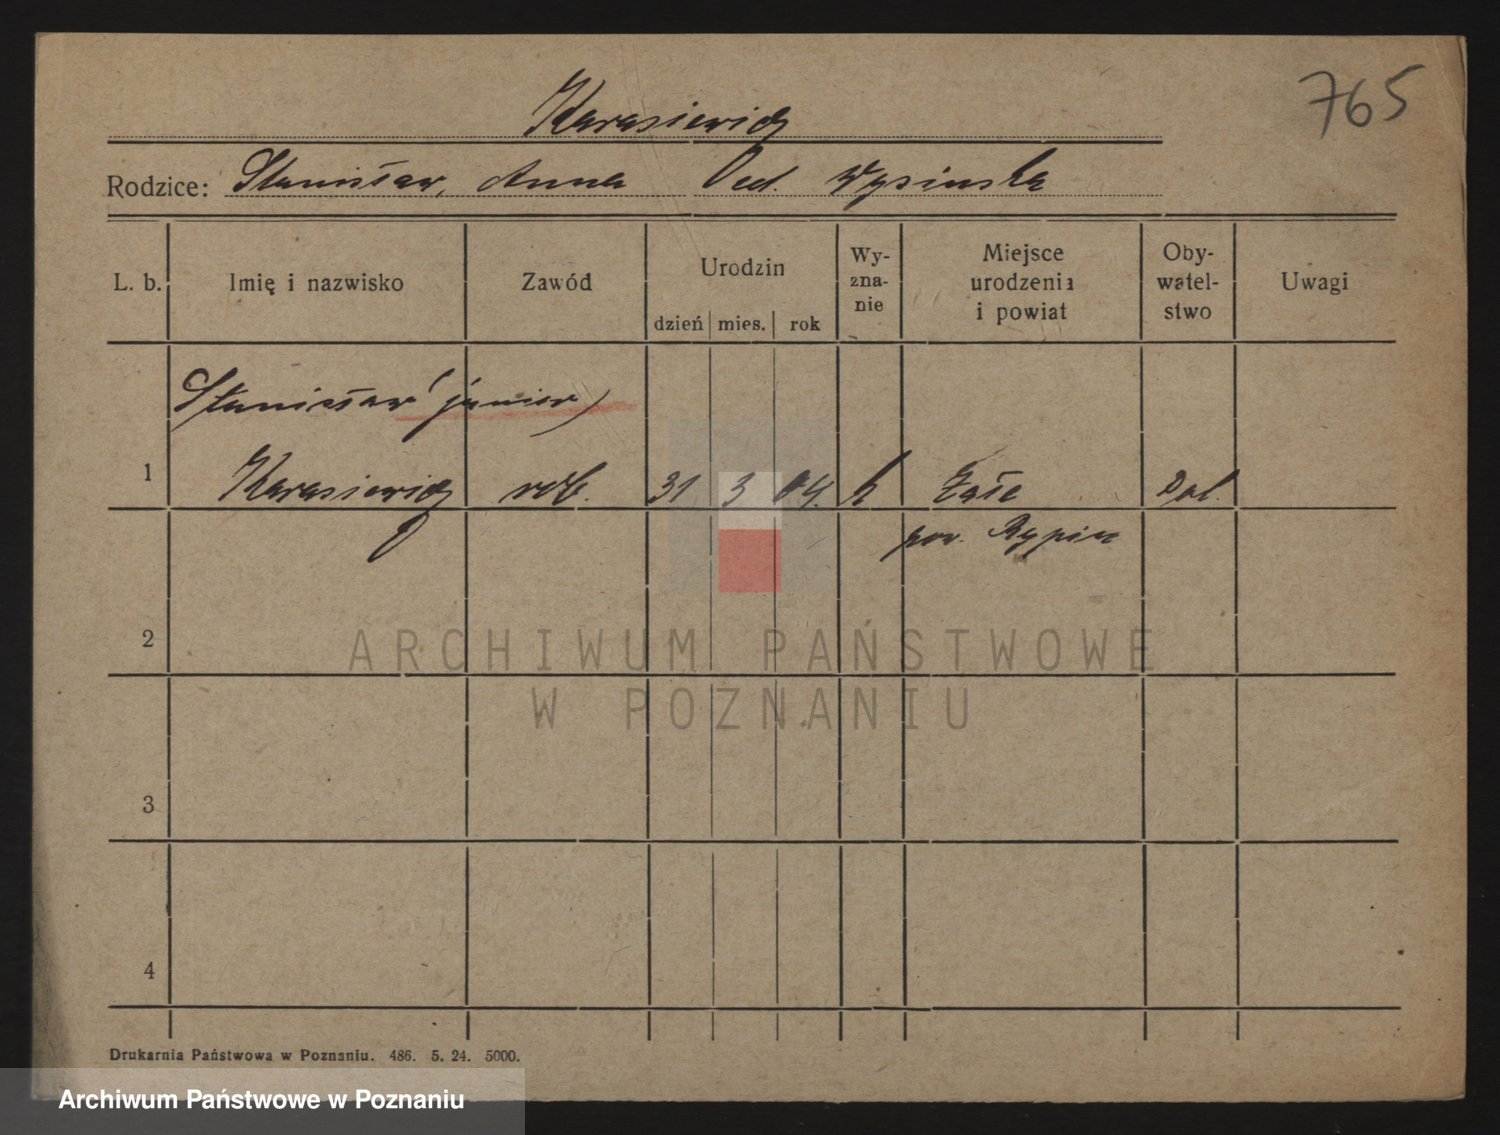 765
Karasiewicz
Rodzice: Stanisław, Anna
L. b.
Imię i nazwisko
Zawód
Urodzin
dzień
mies.
rok
Wy-
zna-
nie
Miejsce
urodzenia
i powiat
Oby-
watel-
stwo
Uwagi
Stanisław (junior)
1 Karasiewicz rob. 31 3 04. k Pol.
pow. Rypin
2
3
4
Drukarnia Państwowa w Poznaniu. 486. 5. 24. 5000.
ARCHIWUM PAŃSTWOWE
W POZNANIU
Archiwum Państwowe w Poznaniu